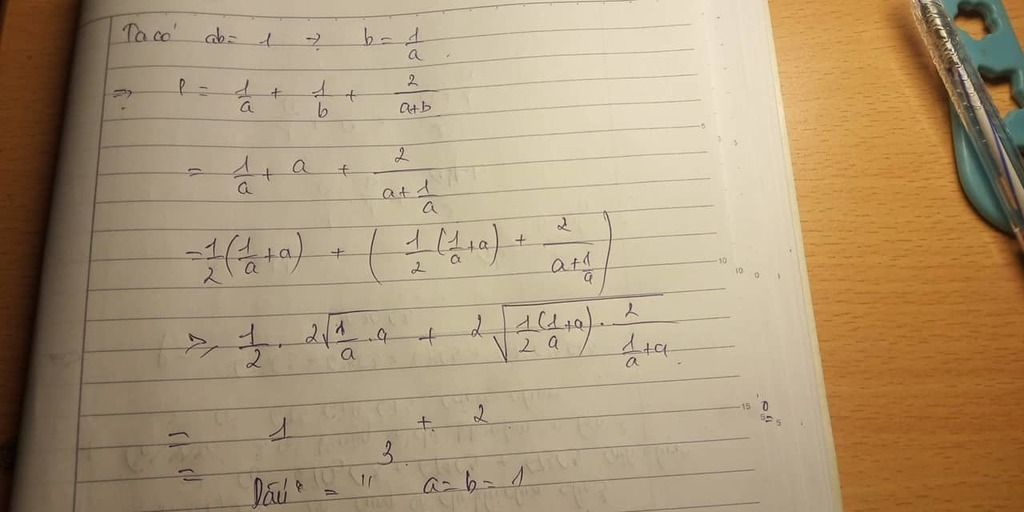 Ta có ab = 1 → b = 1/a.
⇒ P = 1/a + 1/b + 2/(a+b)
= 1/a + a + 2/(a + 1/a)
= 1/2 (1/a + a) + ( 1/2 (1/a + a) + 2/(a + 1/a) )
≥, 1/2 . 2√(1/a . a) + 2 √(1/2 (1/a + a) . 2/(1/a + a)).
= 1 + 2
= 3
Dấu "=" a = b = 1